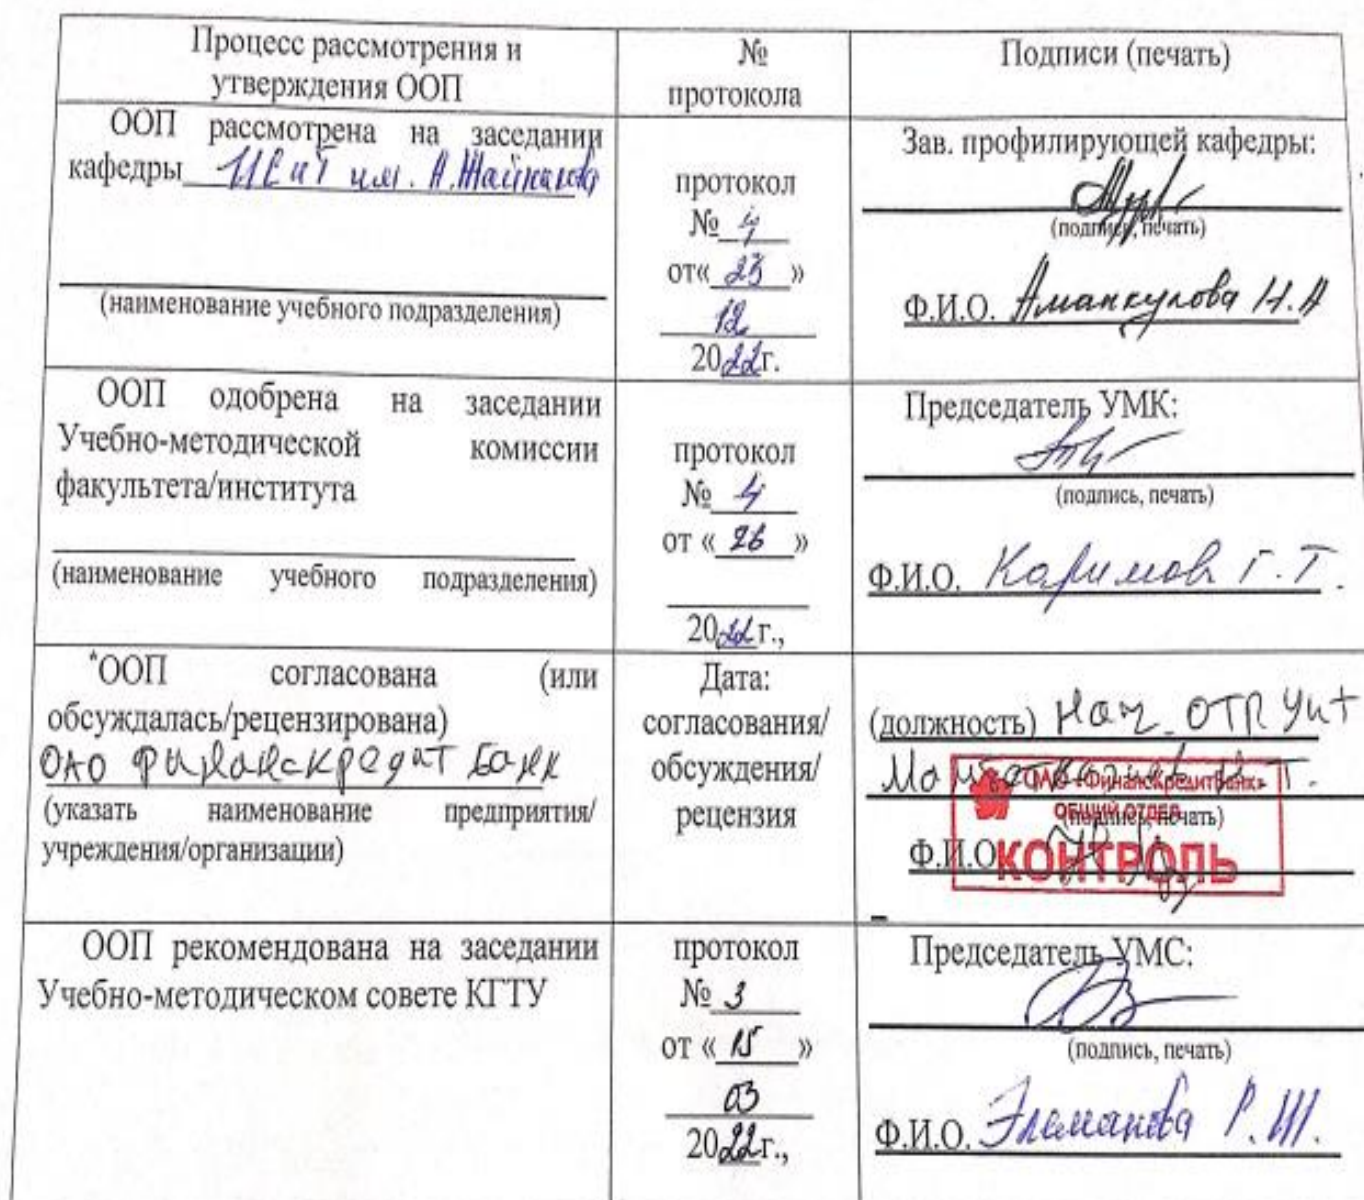 Процесс рассмотрения и
утверждения ООП
№
протокола
Подписи (печать)
ООП рассмотрена на заседании
кафедры ИСиТ им. А.Жайнакова
(наименование учебного подразделения)
протокол
№ 4
от« 23 »
12
2022г.
Зав. профилирующей кафедры:
(подпись, печать)
Ф.И.О. Аманкулова Н.А
ООП одобрена на заседании
Учебно-методической комиссии
факультета/института
(наименование учебного подразделения)
протокол
№ 4
от « 26 »
2022г.,
Председатель УМК:
(подпись, печать)
Ф.И.О. Каримов Г.Т.
*ООП согласована (или
обсуждалась/рецензирована)
ОАО ФинансКредит Банк
(указать наименование предприятия/
учреждения/организации)
Дата:
согласования/
обсуждения/
рецензия
(должность) Нач. ОТР
ОАО «ФинансКредитБанк»
ОБЩИЙ ОТДЕЛ
(подпись, печать)
Ф.И.О
КОНТРОЛЬ
ООП рекомендована на заседании
Учебно-методическом совете КГТУ
протокол
№ 3
от « 15 »
03
2022г.,
Председатель УМС:
(подпись, печать)
Ф.И.О. Элеманова Р.Ш.